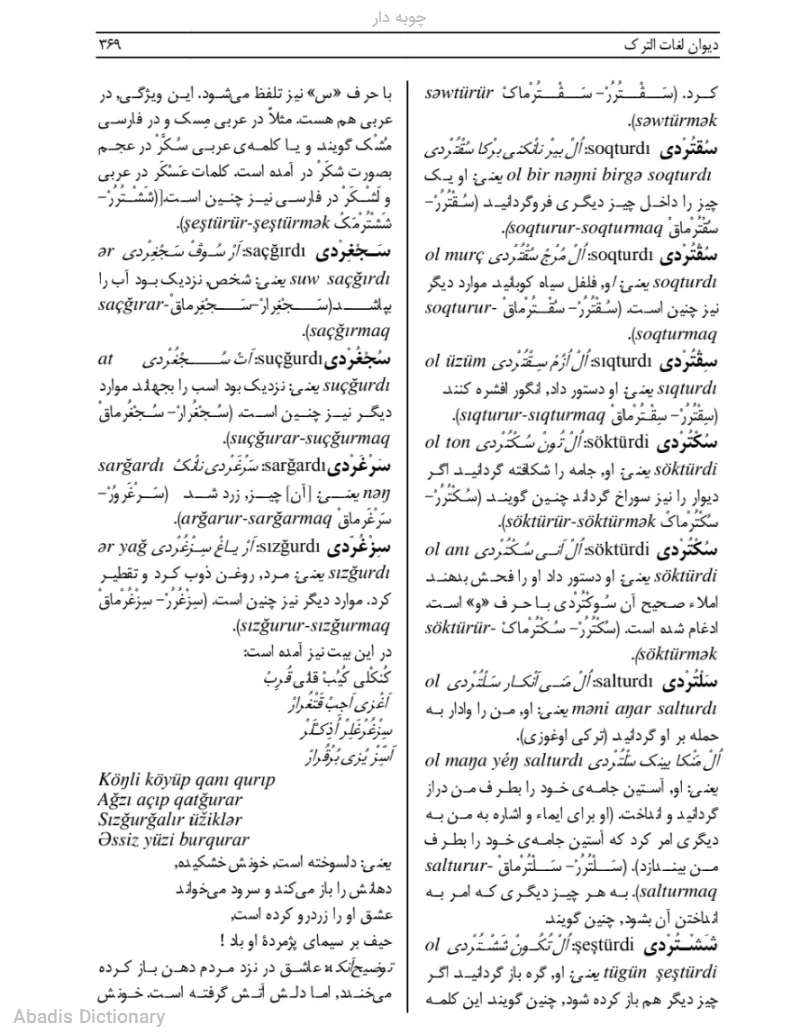 چوبه دار
دیوان لغات الترک
۳۶۹
کـرد. (سَـــقْـــتُرُرْ- سَـــقْـــتُرْماکْ səwtürür
səwtürmək).
سُقتُرْدی soqturdı: اُلْ بیرْ نانْکنی بِرْکا سُقْتُرْدی
ol bir nəŋni birgə soqturdı یعنی: او یـک
چیز را داخـل چیـز دیگـری فروگردانیـد (سُـقْتُرُرْ-
سُقْتُرْماقْ soqturur-soqturmaq).
سُقْتُرْدی soqturdı: اُلْ مُرْجْ سُقْتُرْدی ol murç
soqturdı یعنی: او, فلفل سیاه کوبانید موارد دیگر
نیز چنین اسـت. (سُـقْتُرُرْ- سُقْــتُرْماقْ soqturur-
soqturmaq).
سِقْتُرْدی sıqturdı: اُلْ اُزُمْ سِـقْتُرْدی ol üzüm
sıqturdı یعنی: او دستور داد, انگور افشره کنند
(سِقْتُرُرْ- سِقْتُرْماقْ sıqturur-sıqturmaq).
سُکْتُرْدی söktürdi: اُلْ تُونْ سُـکْتُرْدی ol ton
söktürdi یعنی: او, جامه را شکافته گردانیـد اگـر
دیوار را نیز سوراخ گرداند چنین گوینـد (سُـکْتُرُرْ-
سُکْتُرْماکْ söktürür-söktürmək).
سُکْتُرْدی söktürdi: اُلْ اَنـی سُـکْتُرْدی ol anı
söktürdi یعنی: او دستور داد او را فحـش بدهنـد
املاء صـحیح آن سُـوکْتُرْدی بـا حـرف «و» اسـت.
ادغام شده است. (سُکْتُرُرْ- سُـکْتُرْماکْ söktürür-
söktürmək).
سَلْتُرْدی salturdı: اُلْ مَنـی اَنْکـار سَـلْتُرْدی ol
məni aŋar salturdı یعنی: او, مـن را وادار بـه
حمله بر او گردانید (ترکی اوغوزی).
اُلْ مَنْکا یینک سَلْتُرْدی ol maŋa yéŋ salturdı
یعنی: او, آستین جامه‌ی خـود را بطـرف مـن دراز
گردانید و انداخت. (او برای ایماء و اشاره به مـن بـه
دیگری امر کرد که آستین جامه‌ی خـود را بطـرف
مـن بینـدازد). (سَـلْتُرُرْ- سَـلْتُرْماقْ salturur-
salturmaq). بـه هـر چیـز دیگـری کـه امـر بـه
انداختن آن بشود, چنین گویند
شَشْـتُرْدی şeştürdi: اُلْ تُکُـونْ شَشْـتُرْدی ol
tügün şeştürdi یعنی: او, گره باز گردانیـد اگـر
چیز دیگر هم باز کرده شود, چنین گویند این کلمـه
با حرف «س» نیز تلفظ می‌شود. ایـن ویژگـی, در
عربی هم هست. مثلاً در عربی مِسک و در فارسـی
مُشْـک گوینـد و یـا کلمـه‌ی عربـی سُـکَّرْ در عجـم
بصورت شکَرْ در آمده است. کلمات عَسْکَرْ در عربی
و لَشْـکَرْ در فارسـی نیـز چنـین اسـت.](شَشْـتُرُرْ-
شَشْتُرْمَکْ şeştürür-şeştürmək).
سَـجْغِرْدی saçğırdı: اَرْ سُـوفْ سَـجْغِرْدی ər
suw saçğırdı یعنی: شخص, نزدیک بـود آب را
بپاشــد(سَــجْغِرارْ-سَــجْغِرماقْ saçğırar-
saçğırmaq).
سُجْغُرْدی suçğurdı: اَتْ سُـــجْغُرْدی at
suçğurdı یعنی: نزدیک بود اسب را بجهاند موارد
دیگـر نیـز چنـین اسـت. (سُـجْغُرارْ- سُـجْغُرماقْ
suçğurar-suçğurmaq).
سَرْغَرْدی sarğardı: سَرْغَرْدی نانْکْ sarğardı
nəŋ یعنـی: [آن] چیـز, زرد شـد (سَـرْغَرورْ-
سَرْغَرماقْ arğarur-sarğarmaq).
سِزْغُرْدی sızğurdı: اَرْ یـاغْ سِـزْغُرْدی ər yağ
sızğurdı یعنی: مرد, روغـن ذوب کـرد و تقطیـر
کرد. موارد دیگر نیز چنین است. (سِزْغُرُرْ- سِزْغُرْماقْ
sızğurur-sızğurmaq).
در این بیت نیز آمده است:
کُنکْلی کُیُبْ قانی قُرِبْ
اَغْزی اَجِبْ قَتْغُرارْ
سِزْغُرْغَلِرْ اُذِکْلَرْ
اَسِّزْ یُزی بُرْقُرارْ
Köŋli köyüp qanı qurıp
Ağzı açıp qatğurar
Sızğurğalır üžiklər
Əssiz yüzi burqurar
یعنی: دلسوخته است, خونش خشکیده,
دهانش را باز می‌کند و سرود می‌خواند
عشق او را زردرو کرده است,
حیف بر سیمای پژمردهٔ او باد !
توضیح‌آنکه: عاشـق در نزد مـردم دهـن بـاز کـرده
می‌خنـد, امـا دلـش آتـش گرفتـه اسـت. خـونش
Abadis Dictionary